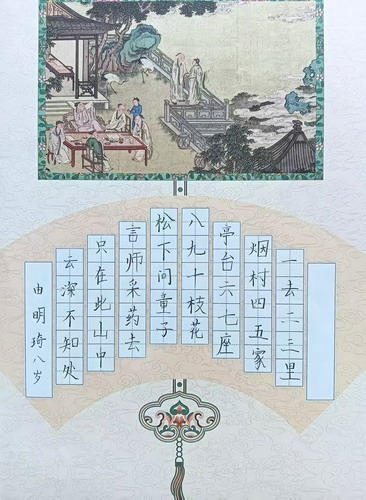 一去二三里
烟村四五家
亭台六七座
八九十枝花
松下问童子
言师采药去
只在此山中
云深不知处
由明琦八岁